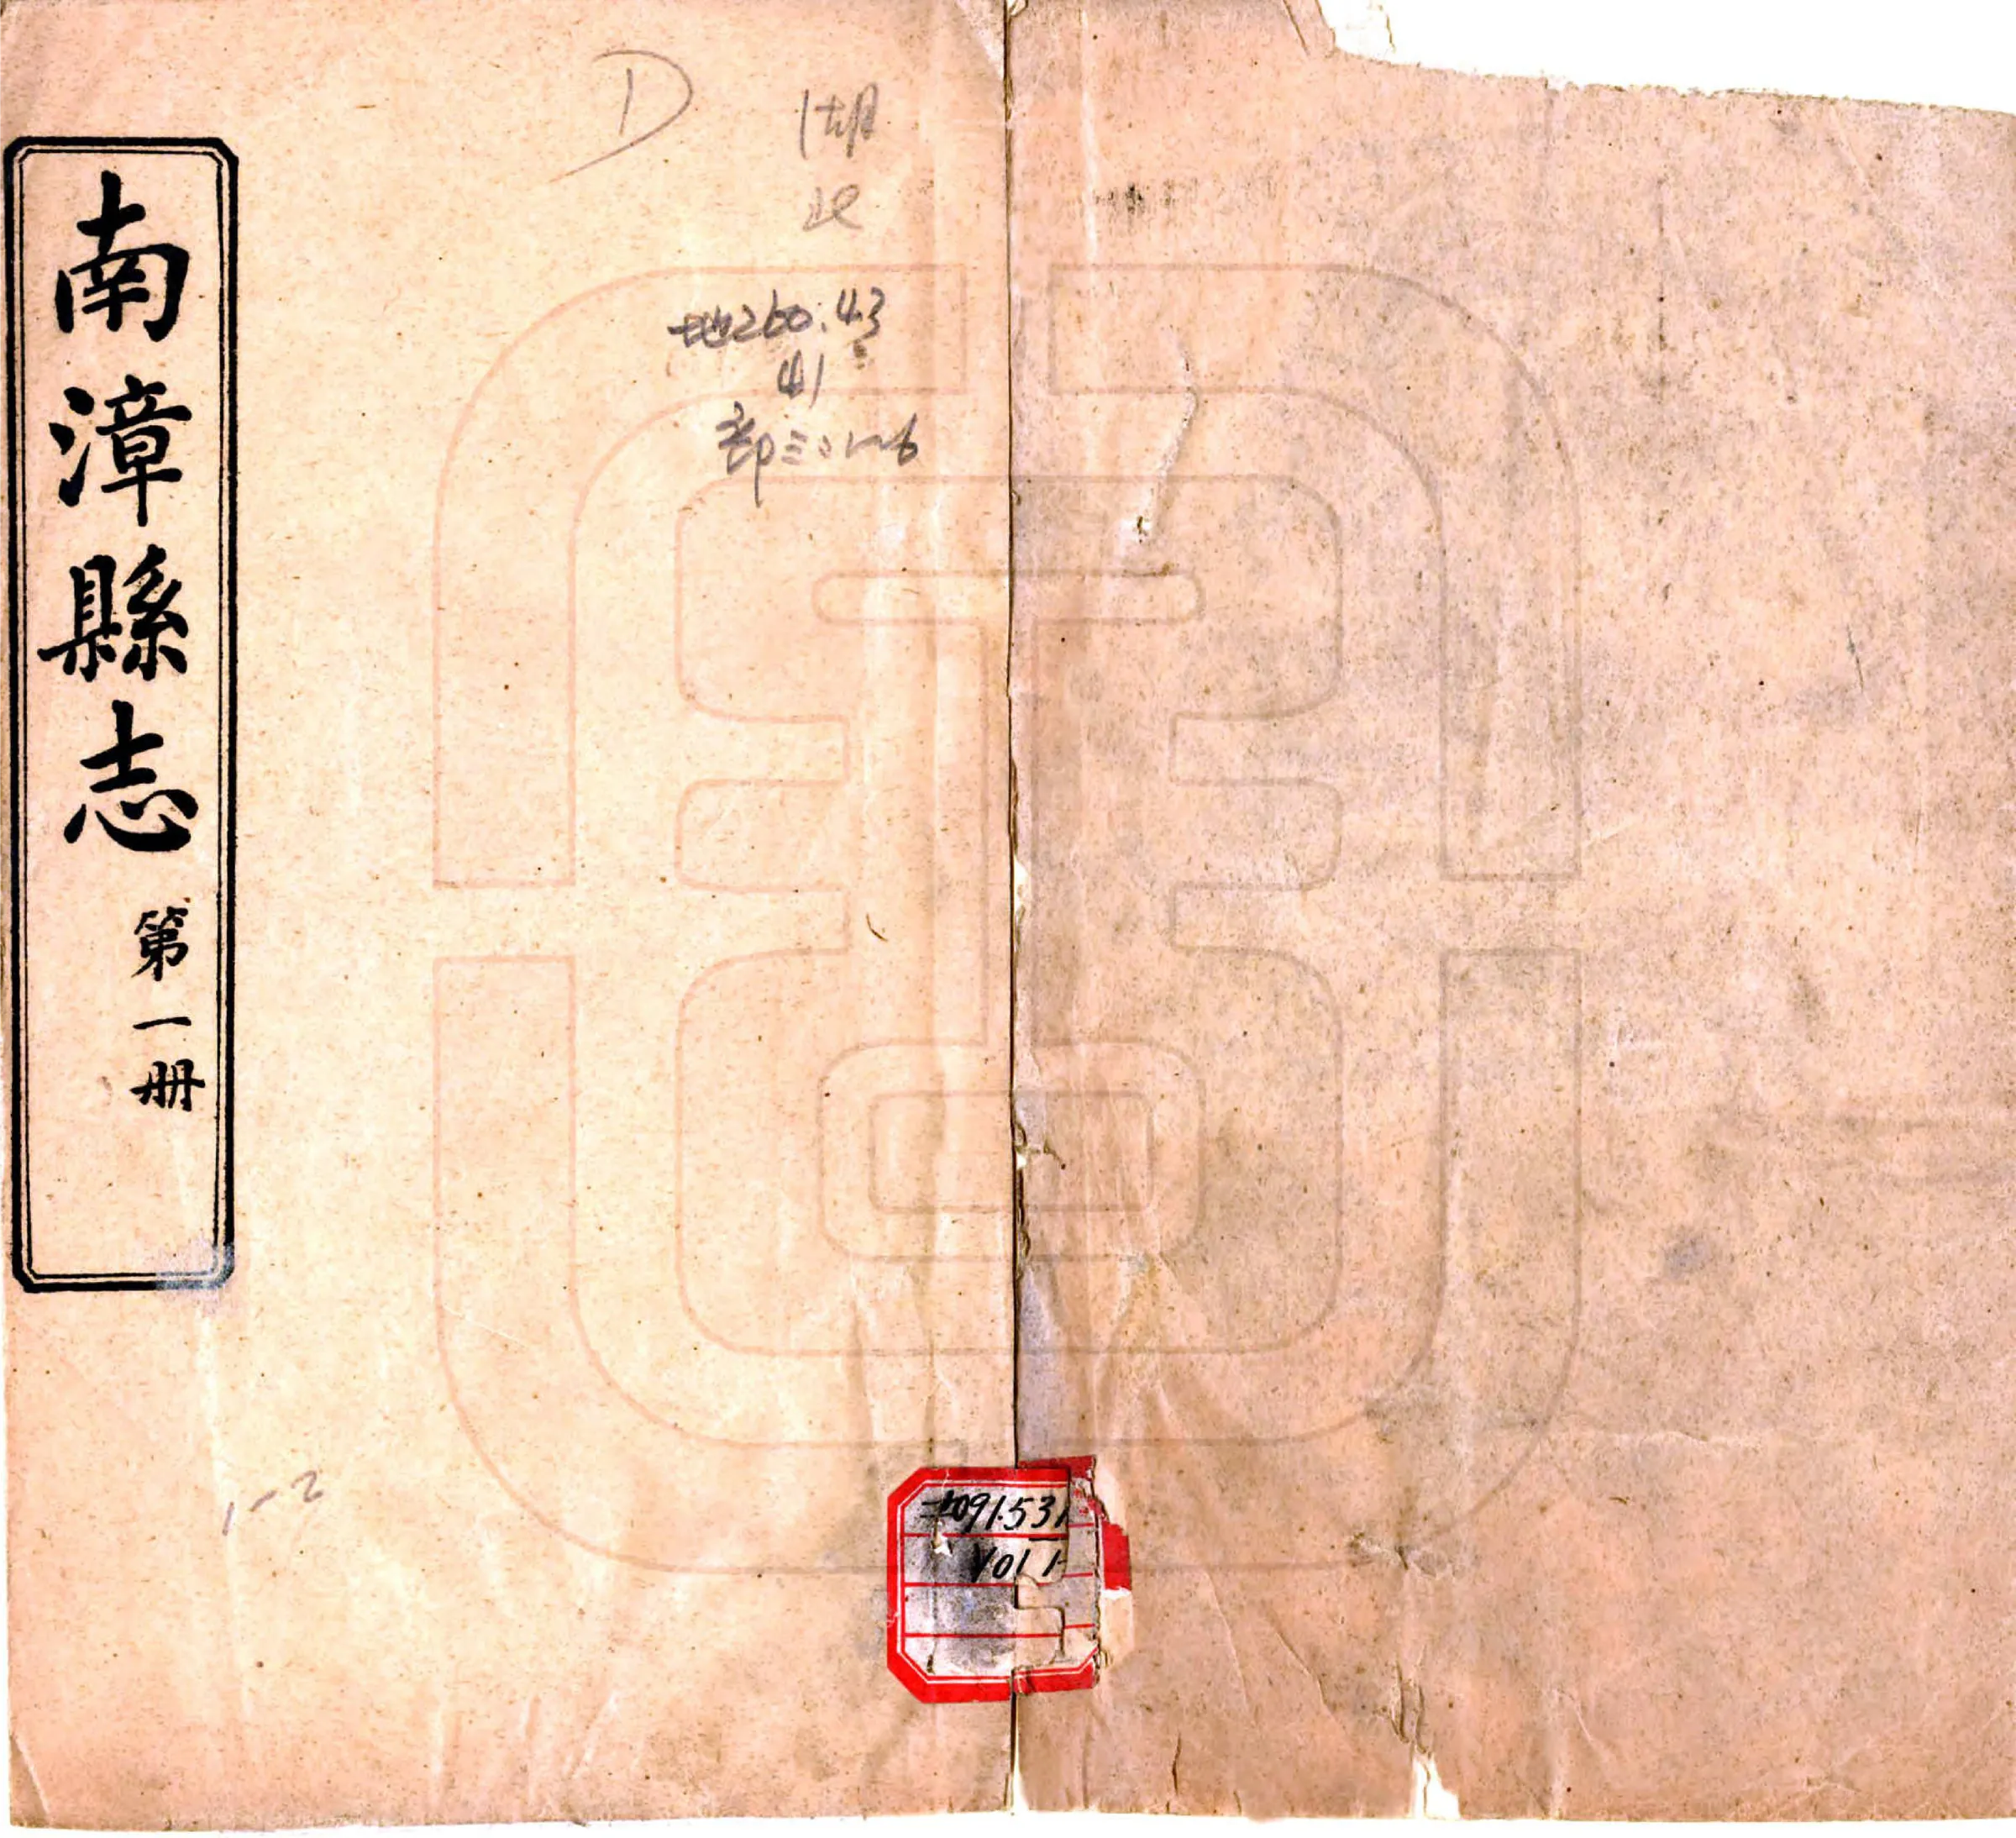 南漳縣志
第一册
D
湖
北
地260.43
41
部三:1~6
1-2
091.531